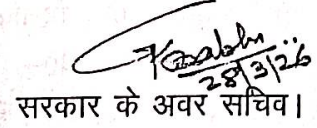 28/3/26
सरकार के अवर सचिव।